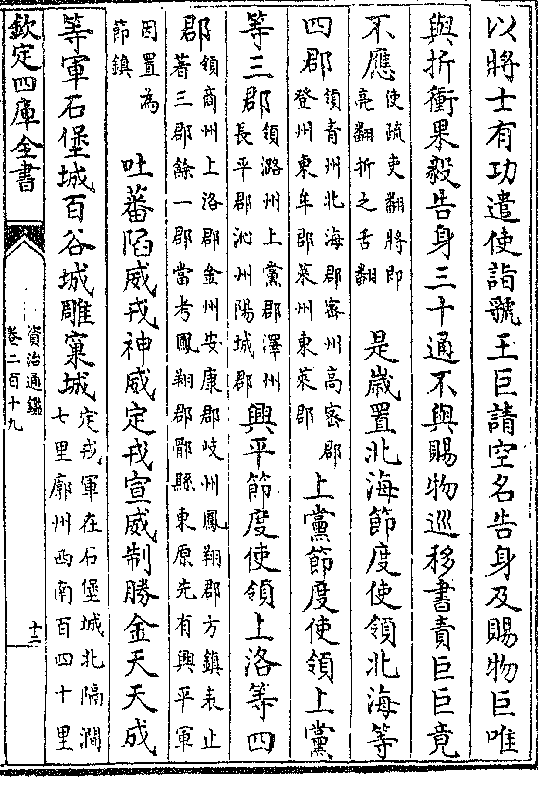 以將士有功遣使詣虢王巨請空名告身及賜物巨唯
與折衝果毅告身三十通不與賜物巡移書責巨巨竟
不應使疏吏翻將即亮翻折之舌翻 是歲置北海節度使領北海等
四郡領青州北海郡密州高密郡登州東牟郡萊州東萊郡上黨節度使領上黨
等三郡領潞州上黨郡澤州長平郡沁州陽城郡興平節度使領上洛等四
郡領商州上洛郡金州安康郡岐州鳳翔郡方鎮表止著三郡餘一郡當考鳳翔郡郿縣東原先有興平軍
因置為節鎮 吐蕃陷威戎神威定戎宣威制勝金天天成
等軍石堡城百谷城雕窠城定戎軍在石堡城北隔澗七里廓州西南百四十里
欽定四庫全書
資治通鑑
卷二百十九
十二